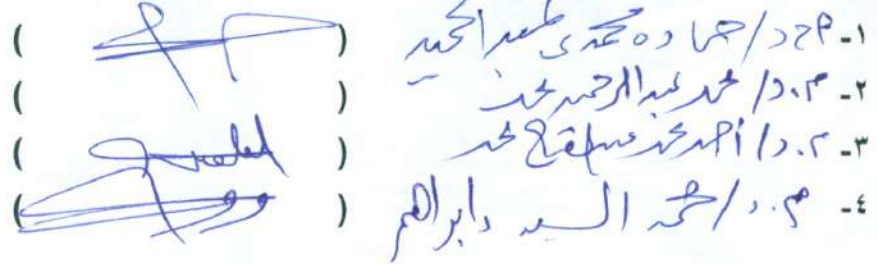 ١- م.د/ حماده محمدى عبد الحميد ( )
٢- م.د/ محمد عبدالرحمن محمد ( )
٣- م.د/ أحمد محمد عبدالفتاح محمد ( )
٤- م.د/ محمد السيد إبراهيم ( )